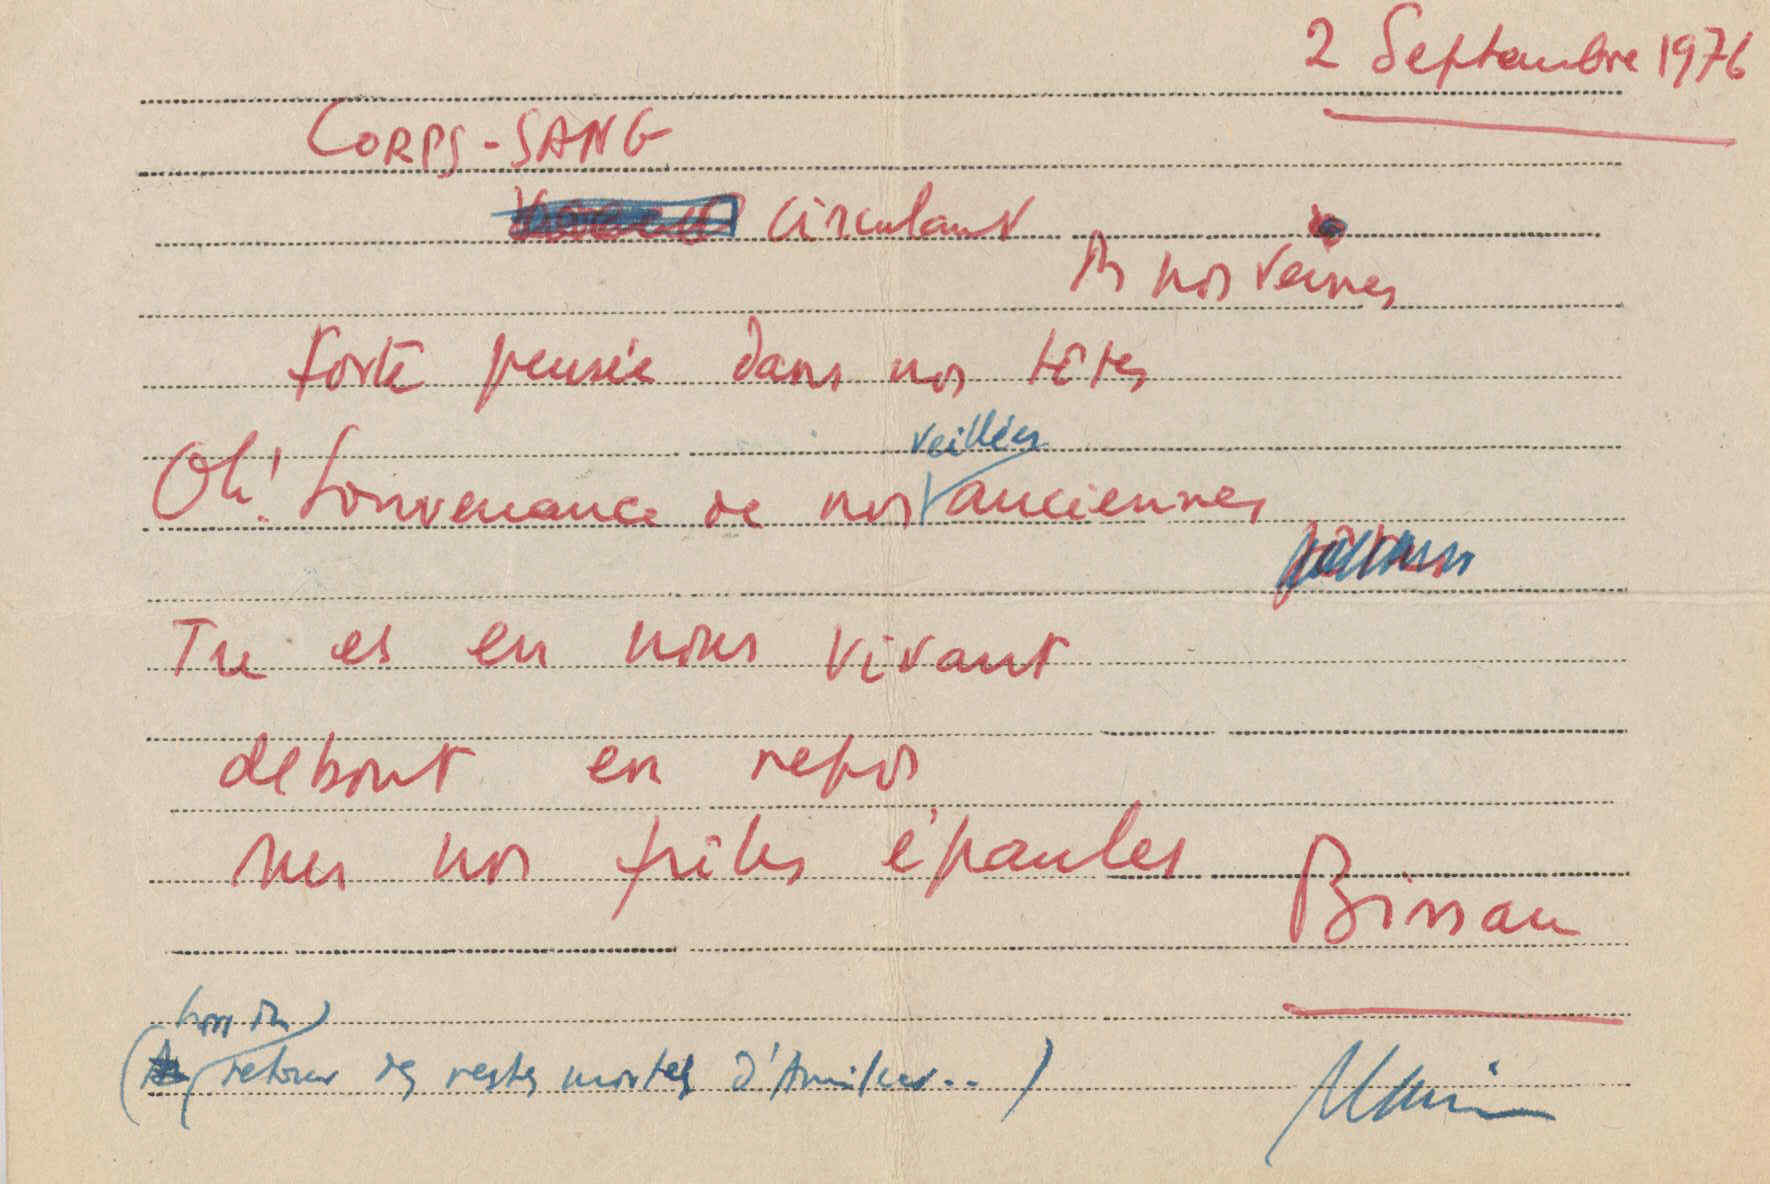 2 Septembre 1976
CORPS-SANG
circulant
nos veines
forte pensée dans nos têtes
veillées
Oh! Souvenance de nos anciennes
Tu es en nous vivant
debout en repos
sur nos frêles épaules
Bissau
lors du
(retour des restes mortels d'Amilcar..)